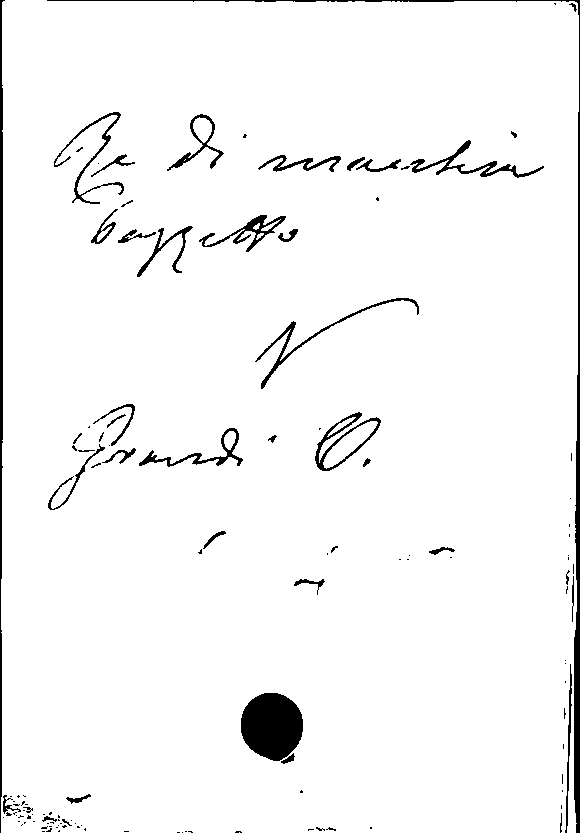 Re di maestria
bozzetto
V
Grandi O.